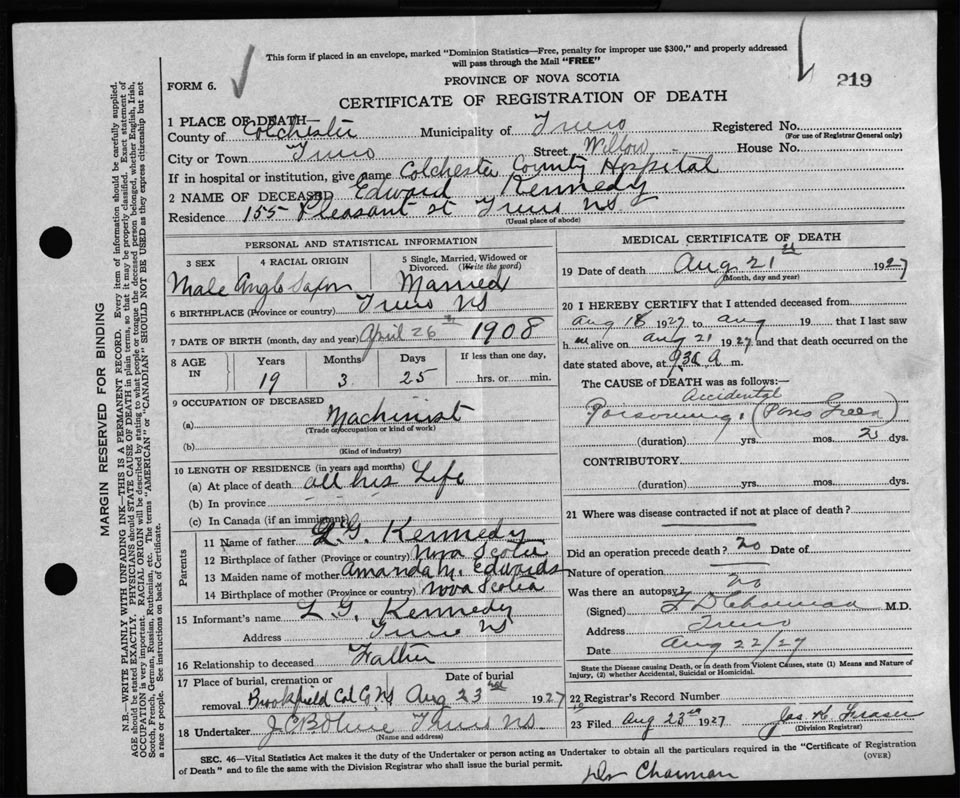 This form if placed in an envelope, marked "Dominion Statistics—Free, penalty for improper use $300," and properly addressed
will pass through the Mail "FREE"
FORM 6.
PROVINCE OF NOVA SCOTIA
219
CERTIFICATE OF REGISTRATION OF DEATH
1 PLACE OF DEATH—
County of Colchester Municipality of Truro Registered No.
(For use of Registrar General only)
City or Town Truro Street Willow House No.
If in hospital or institution, give name Colchester County Hospital
2 NAME OF DECEASED Edward Kennedy
Residence 155 Pleasant st Truro NS
(Usual place of abode)
PERSONAL AND STATISTICAL INFORMATION
3 SEX
4 RACIAL ORIGIN
5 Single, Married, Widowed or
Divorced. (Write the word)
Male Anglo Saxon Married
6 BIRTHPLACE (Province or country) Truro NS
7 DATE OF BIRTH (month, day and year) April 26th 1908
8 AGE IN
Years Months Days If less than one day,
19 3 25 hrs. or min.
9 OCCUPATION OF DECEASED
(a) Machinist
(Trade or occupation or kind of work)
(b)
(Kind of industry)
10 LENGTH OF RESIDENCE (in years and months)
(a) At place of death all his Life
(b) In province
(c) In Canada (if an immigrant)
Parents
11 Name of father L. G. Kennedy
12 Birthplace of father (Province or country) Nova Scotia
13 Maiden name of mother Amanda M. Edwards
14 Birthplace of mother (Province or country) Nova Scotia
15 Informant's name L G. Kennedy
Address Truro NS
16 Relationship to deceased Father
17 Place of burial, cremation or
removal Brookfield Col Co NS
Date of burial
Aug 23rd 1927
18 Undertaker Truro NS.
(Name and address)
MEDICAL CERTIFICATE OF DEATH
19 Date of death Aug 21st 1927
(Month, day and year)
20 I HEREBY CERTIFY that I attended deceased from
Aug 18 1927 to Aug 19 that I last saw
him alive on Aug 21 1927 and that death occurred on the
date stated above, at 9.30 A m.
The CAUSE of DEATH was as follows:—
Accidental
Poisoning. (Paris Green)
(duration) yrs. mos. dys.
CONTRIBUTORY
(duration) yrs. mos. dys.
21 Where was disease contracted if not at place of death?
Did an operation precede death? no Date of
Nature of operation
Was there an autopsy? no
(Signed) Charman M.D.
Address Truro
Date Aug 22/27
State the Disease causing Death, or in death from Violent Causes, state (1) Means and Nature of
Injury, (2) whether Accidental, Suicidal or Homicidal.
22 Registrar's Record Number
23 Filed Aug 23rd 1927 Jas K Fraser
(Division Registrar)
SEC. 46—Vital Statistics Act makes it the duty of the Undertaker or person acting as Undertaker to obtain all the particulars required in the "Certificate of Registration
of Death" and to file the same with the Division Registrar who shall issue the burial permit.
(OVER)
Dr Charman
MARGIN RESERVED FOR BINDING
N.B.—WRITE PLAINLY WITH UNFADING INK—THIS IS A PERMANENT RECORD. Every item of information should be carefully supplied.
AGE should be stated EXACTLY. PHYSICIANS should STATE CAUSE OF DEATH in plain terms, so that it may be properly classified. Exact statement of
OCCUPATION is very important. RACIAL ORIGIN will be described by stating to what people or tongue the deceased person belonged, whether English, Irish,
Scotch, French, German, Russian, Ruthenian, etc. The terms "AMERICAN" or "CANADIAN" SHOULD NOT BE USED as they express citizenship but not
a race or people. See instructions on back of Certificate.